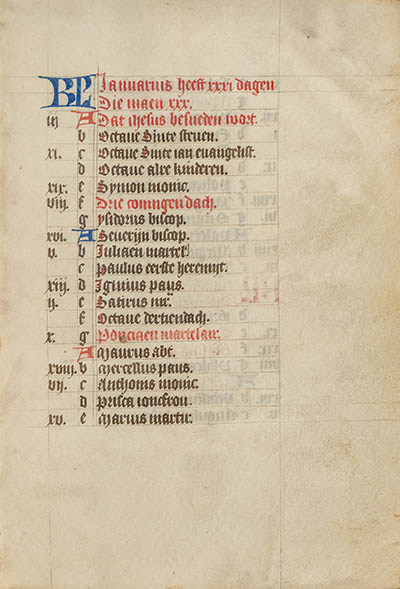 KL Januarius heeft xxxi dagen
Die maen xxx.
iij A Dat ihesus besneden wort.
b Octave Sinte steven.
xi. c Octave Sinte ian evangelist.
d Octave alre kinderen.
xix. e Symon monic.
viij. f Drie coningen dach.
g ysidorus biscop.
xvi. A Severijn biscop.
v. b Juliaen martel
c paulus eerste heremijt.
xiij. d Iginius paus.
ij. e Satirus mr.
f Octave dertiendach.
x. g martelaer.
A Maurus abt.
xviij. b Mercellus paus.
vij. c Anthonis monic.
d prisca ioncfrou.
xv. e Marius martir.